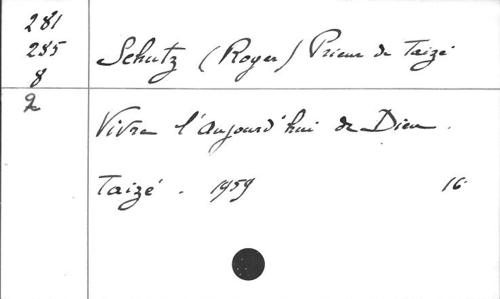 281
285
8
Schutz (Roger) Prieur de Taizé
Vivre l'aujourd'hui de Dieu.
Taizé. 1959 16